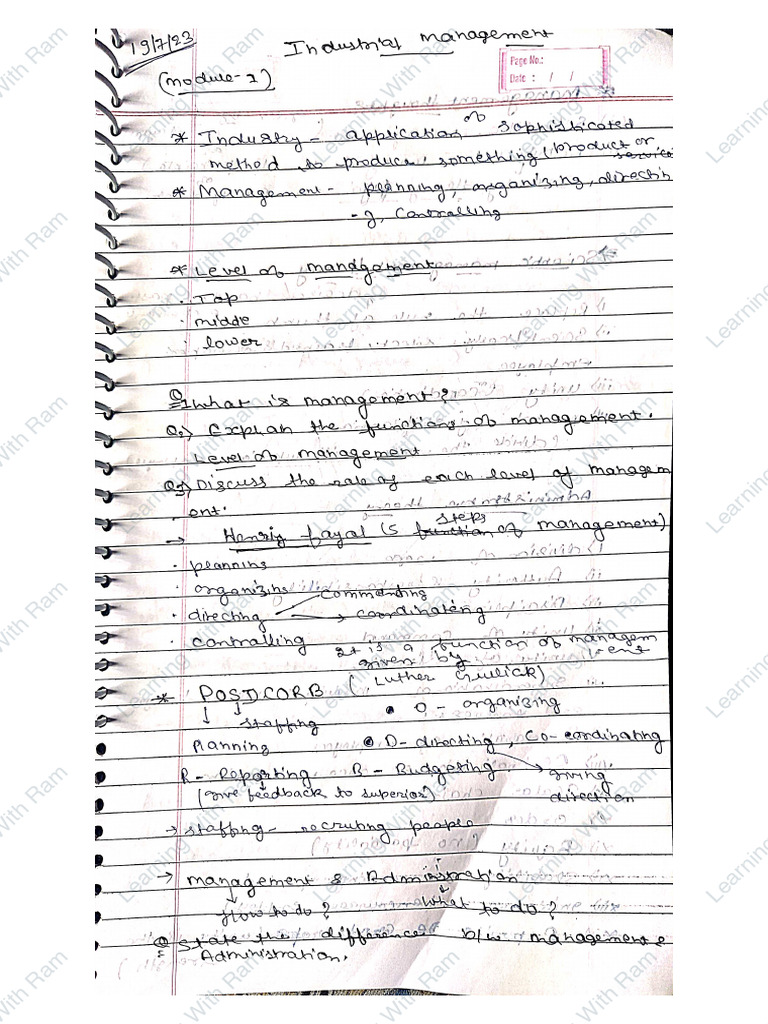 19/7/23
Industrial Management
Page No.:
Date : / /
(Module-1)
* Industry - application of sophisticated
method to produce something (product or
service
* Management - planning, organizing, directin
-g, Controlling
* Level of management
. Top
. middle
. lower
Q1 What is management?
Q2) Explan the functions of management.
Level of management
Q3) Discuss the role of each level of managem
ent.
→ Henriy fayal (5 function steps of management)
. planning
. organizing
commanding
. directing → coordinateng
. contralling
It is a function of managem
ent
given by
* POSDCORB (Luther Gulick)
↓ ↓ staffing • O - organizing
Planning • D - directing, Co - coordinating
R - Reporting B - Budgeting. giving
(give feedback to superior) direction
→ staffing - recruting people
→ management & Administration
↓ ↓
How to do? What to do?
Q State the difference b/w management &
Administration.
Learning With Ram